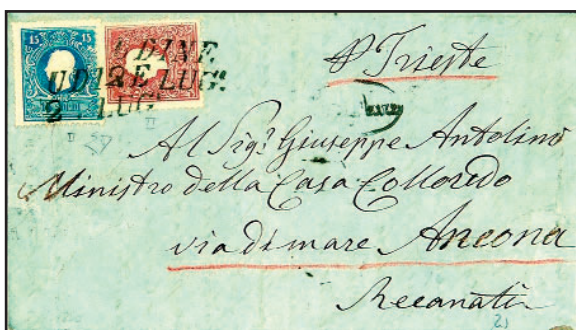 15 15
UDINE
UDINE
12. LUG.
2. LUG.
P Trieste
Al Sig.r Giuseppe Antolini
Ministro della Casa Colloredo
via di mare Ancona
Recanati
II II